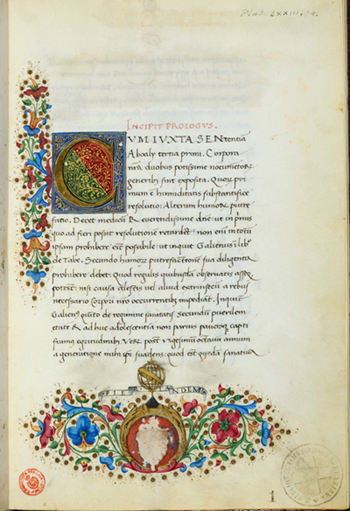 Plut. LXXIII. 34.
INCIPIT PROLOGUS.
CUM IUXTA SENtentia
Aboaly tertia primi. Corpora
nra duobus potissime nocumetoꝝ
generib sint exposita. Quoꝝ pri
mum e humiditatis substantifice
resolutio: Alterum humoꝝ putre
factio. Decet medicu
quo ad fieri potest resolutione retardet: non eni in totu
ipsam prohibere est possibile: ut inquit Galienus i lib
de Tabe. Secundo humoꝝ putrefactione sua diligentia
prohibere debet. Quod regulis quibusda observatis asseq
poterit: nisi causa celestis vel aliud extrinseci a rebus
necessario corpori nro occurrentib impediat. Inquit
Galienus quito de regimine sanitatis. Secundu puerilem
etate & ad huc adolescentia non parvis pauceq capti
fuimus egritudinib. Vex post vigesimum octavu annum
a generatione mihi ipi suadens: quod est queda sanativa
SEMPER
1